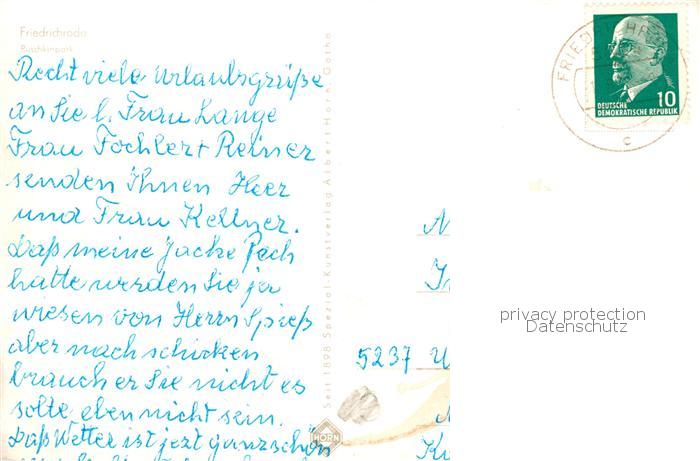 Friedrichroda
Puschkinpark
Recht viele Urlaubsgrüße
an Sie l. Frau Lange
Frau Tochter + Reiner
senden Ihnen Herr
und Frau Kellner.
Daß meine Jacke Pech
hatte werden Sie ja
wiesen von Herrn Spieß
aber nach schicken
braucher Sie nicht es
solte eben nicht sein.
Daß Wetter ist jezt ganz schön
Seit 1898 Spezial-Kunstverlag Albert Horn, Gotha
HORN
DEUTSCHE
DEMOKRATISCHE REPUBLIK
10
c
5237
privacy protection
Datenschutz